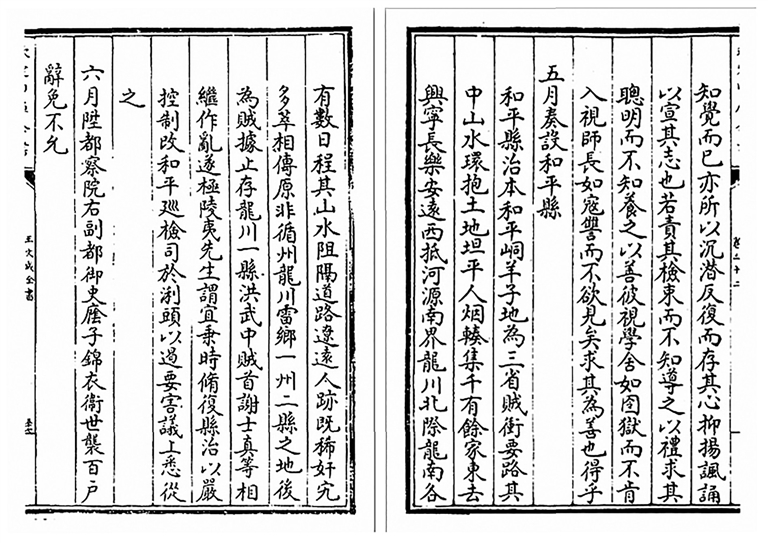 知覺而已亦所以沉潛反復而存其心抑揚諷誦
以宣其志也若責其檢束而不知導之以禮求其
聰明而不知養之以善彼視學舍如囹獄而不肯
入視師長如寇讐而不欲見矣求其為善也得乎
五月奏設和平縣
和平縣治本和平峒羊子地為三省賊衝要路其
中山水環抱土地坦平人烟輳集千有餘家東去
興寧長樂安遠西抵河源南界龍川北際龍南各
有數日程其山水阻隔道路遼遠人跡既稀奸宄
多萃相傳原非循州龍川雷鄉一州二縣之地後
為賊據止存龍川一縣洪武中賊首謝士真等相
繼作亂遂極陵夷先生謂宜乗時脩復縣治以嚴
控制改和平廵檢司於浰頭以過要害議上悉從
之
六月陞都察院右副都御史廕子錦衣衞世襲百戶
辭免不允
王文成全書